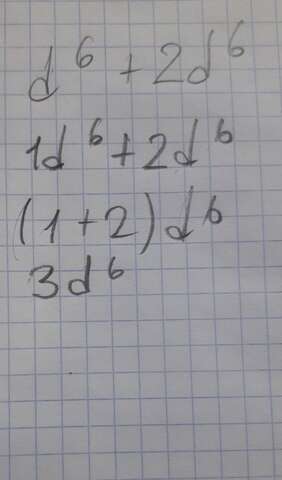 d⁶ + 2d⁶
1d⁶ + 2d⁶
(1 + 2)d⁶
3d⁶